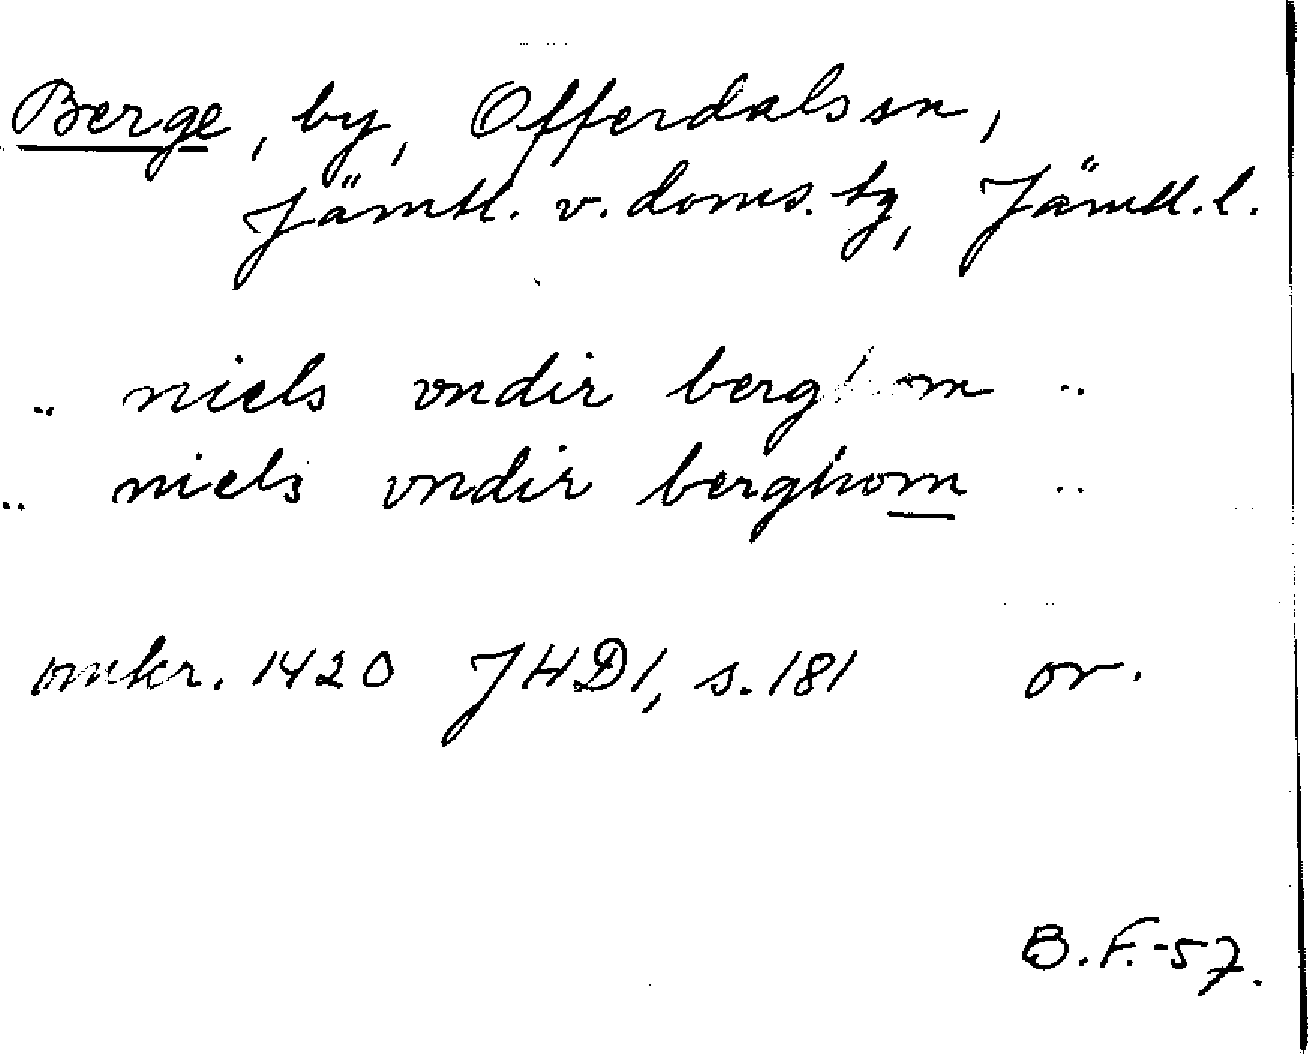 Berge, by, Offerdals sn,
Jämtl. v. doms. tg, Jämtl. l.
.. niels vndir berghom ..
.. niels vndir berghom ..
omkr. 1420 JHD1, s. 181 or.
B.F.-57.